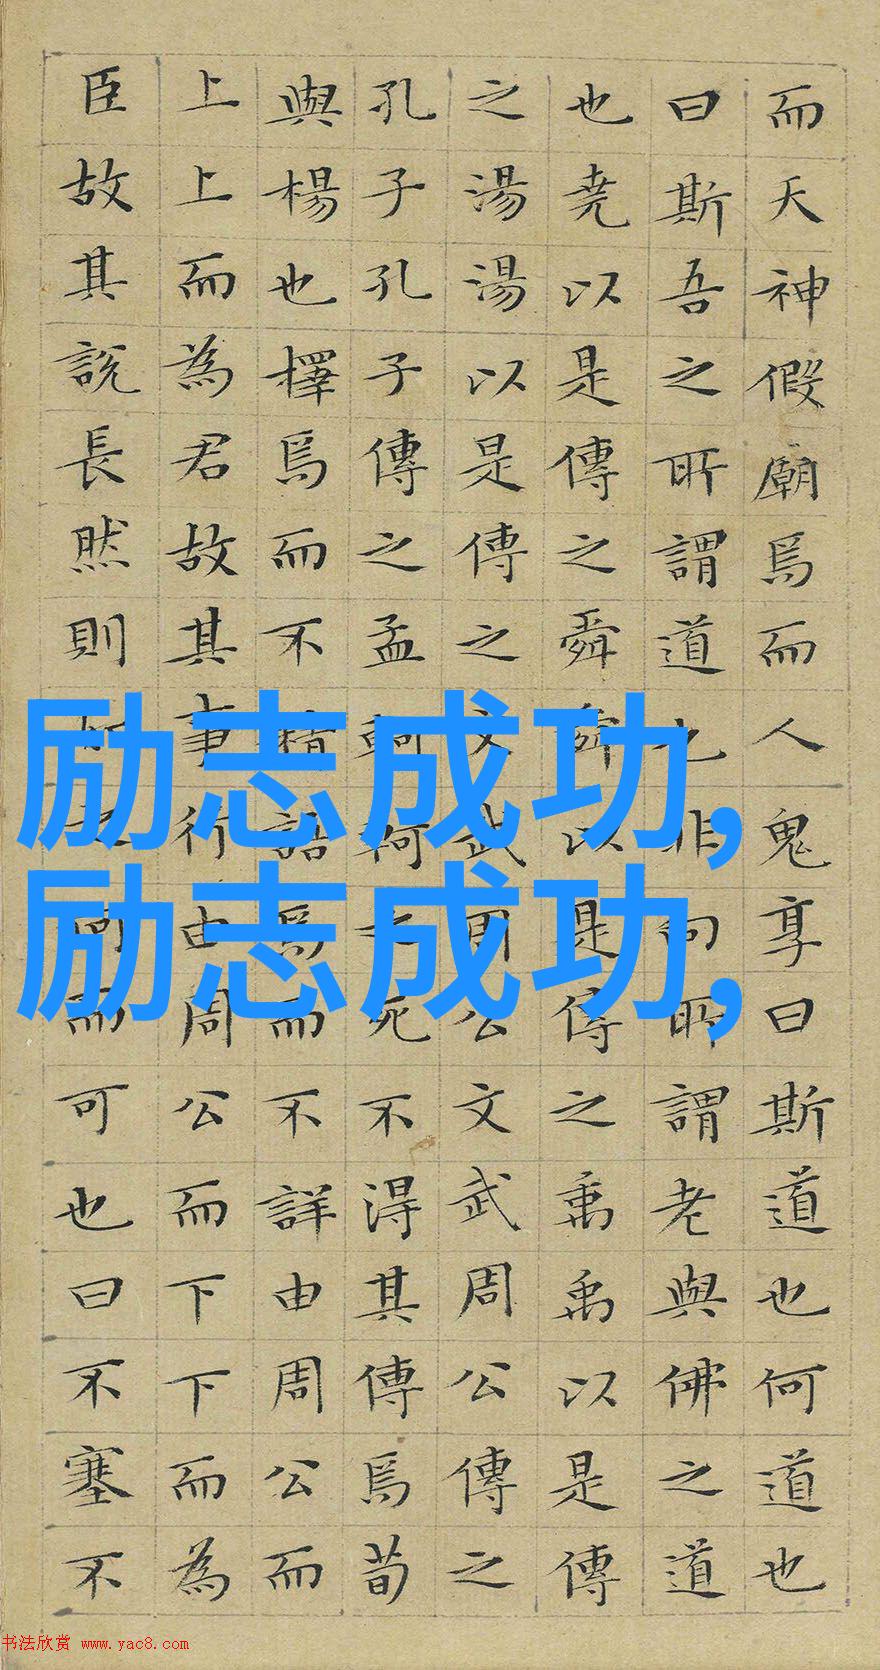 而天神假廟焉而人鬼享曰斯道也何道也
曰斯吾之所謂道也非向所謂老與佛之道
也堯以是傳之舜舜以是傳之禹禹以是傳
之湯湯以是傳之文武周公文武周公傳之
孔子孔子傳之孟軻軻之死不得其傳焉荀
與楊也擇焉而不精語焉而不詳由周公而
上上而為君故其事行由周公而下下而為
臣故其說長然則如之何而可也曰不塞不
励志成功,
励志成功,
书法欣赏 www.yac8.com